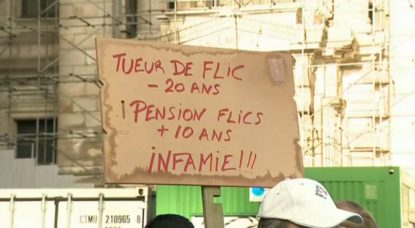 TUEUR DE FLIC
- 20 ANS
PENSION FLICS
+ 10 ANS
iNFAMIE!!!
CTMU 210965 8